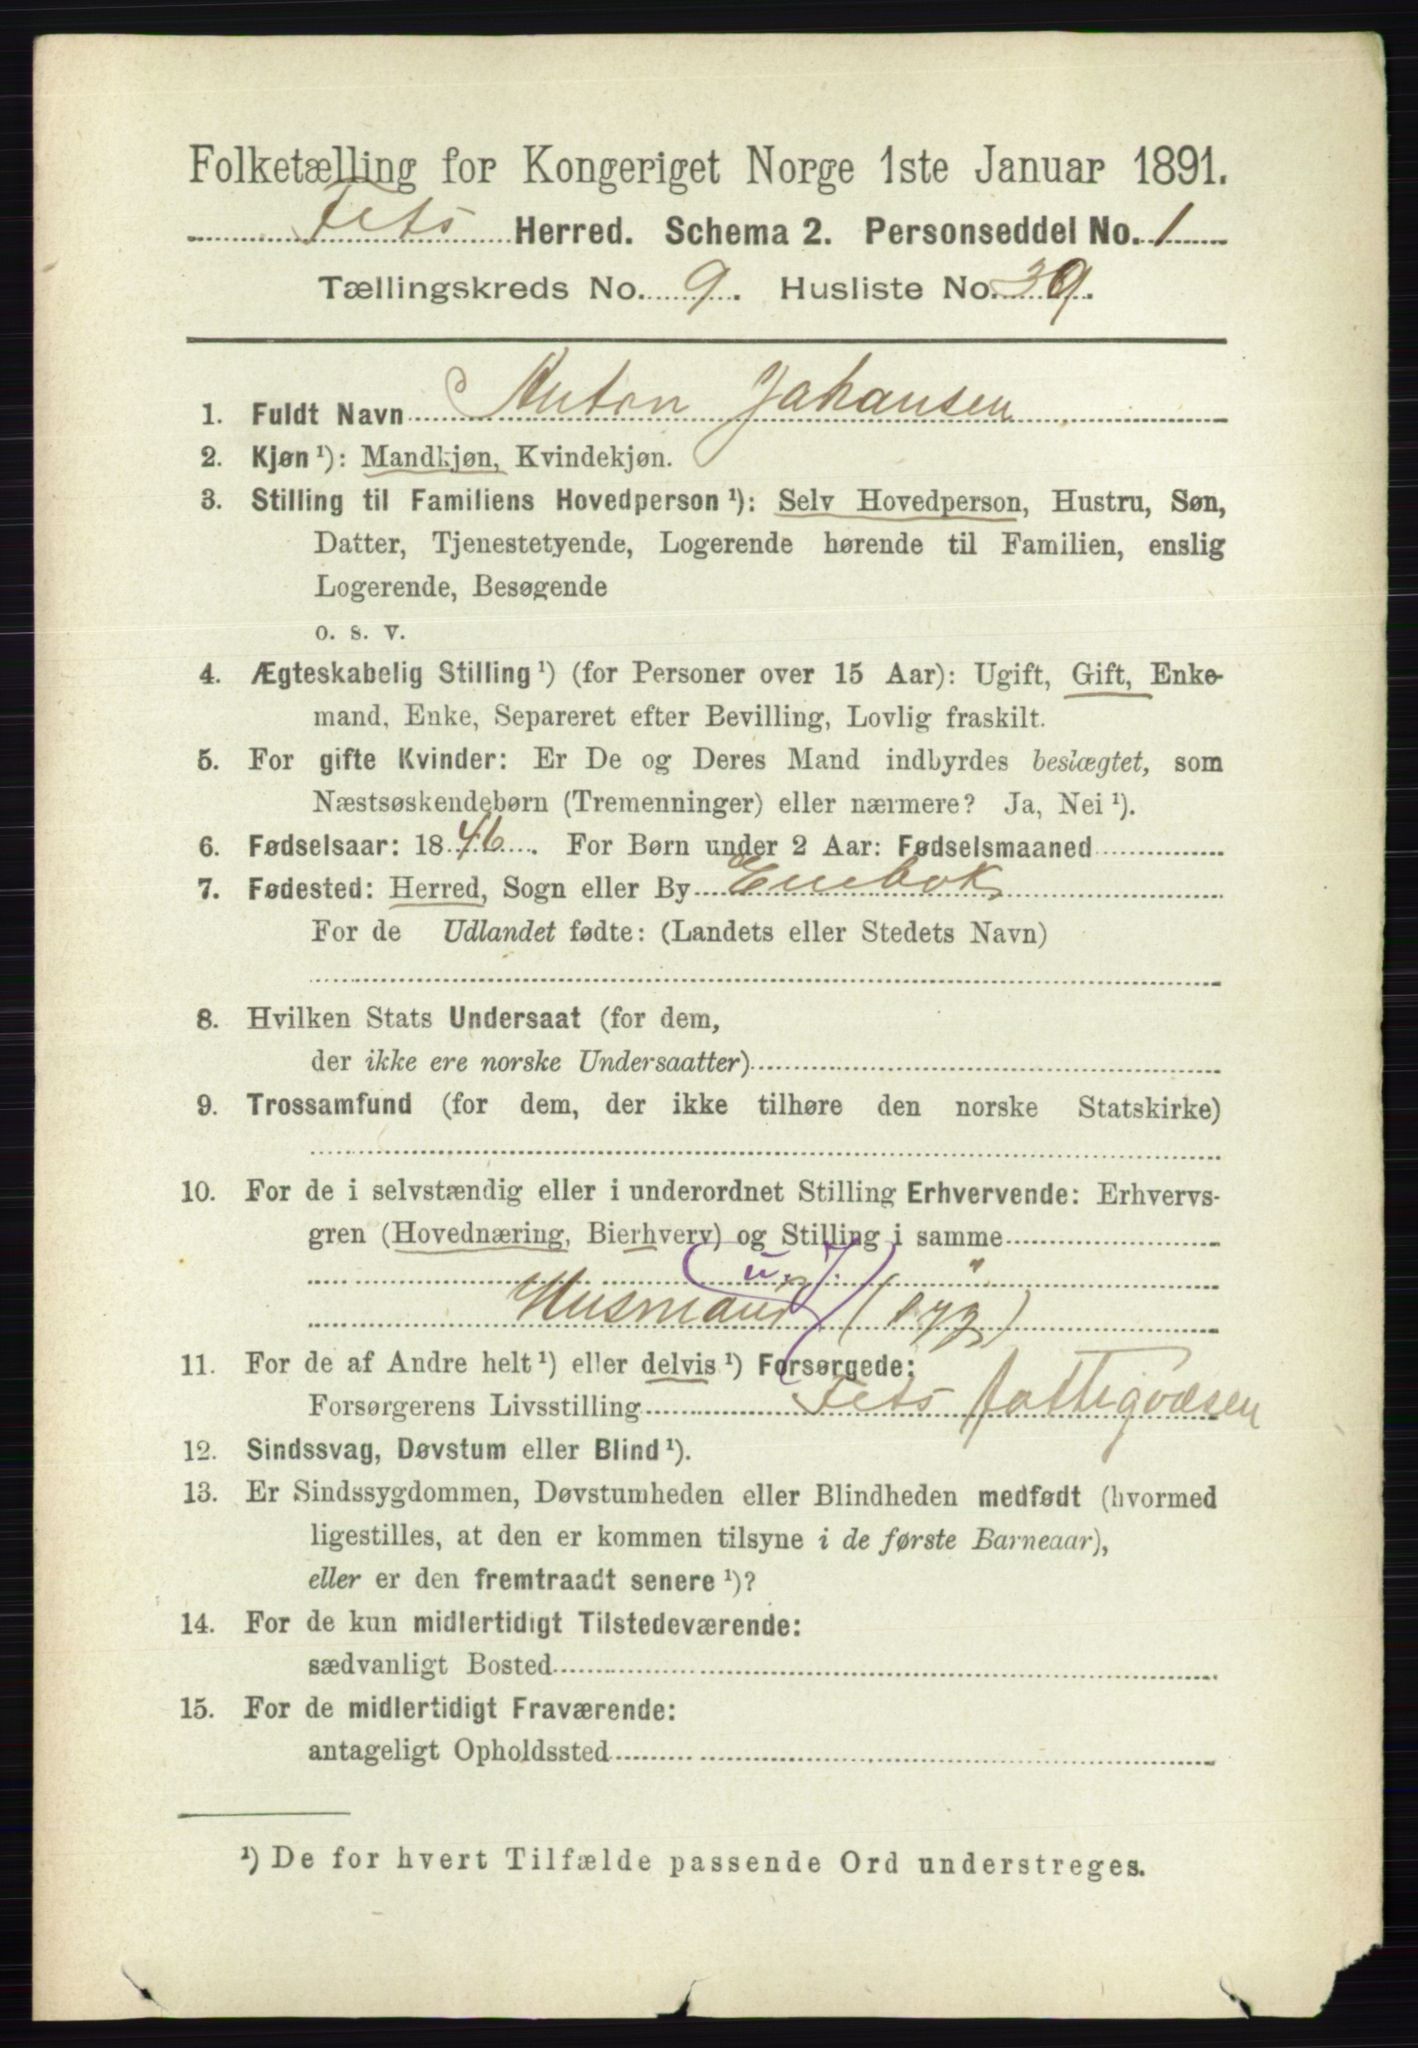 Folketælling for Kongeriget Norge 1ste Januar 1891.
Fets Herred. Schema 2. Personseddel No. 1
Tællingskreds No. 9. Husliste No. 39.
1. Fuldt Navn Anton Johansen
2. Kjøn ¹): Mandkjøn, Kvindekjøn.
3. Stilling til Familiens Hovedperson ¹): Selv Hovedperson, Hustru, Søn,
Datter, Tjenestetyende, Logerende hørende til Familien, enslig
Logerende, Besøgende
o. s. v.
4. Ægteskabelig Stilling ¹) (for Personer over 15 Aar): Ugift, Gift, Enke-
mand, Enke, Separeret efter Bevilling, Lovlig fraskilt.
5. For gifte Kvinder: Er De og Deres Mand indbyrdes beslægtet, som
Næstsøskendebørn (Tremenninger) eller nærmere? Ja, Nei ¹).
6. Fødselsaar: 1846. For Børn under 2 Aar: Fødselsmaaned
7. Fødested: Herred, Sogn eller By Enebak
For de Udlandet fødte: (Landets eller Stedets Navn)
8. Hvilken Stats Undersaat (for dem,
der ikke ere norske Undersaatter)
9. Trossamfund (for dem, der ikke tilhøre den norske Statskirke)
10. For de i selvstændig eller i underordnet Stilling Erhvervende: Erhvervs-
gren (Hovednæring, Bierhverv) og Stilling i samme
(u. J.)
Husmand (syg)
11. For de af Andre helt ¹) eller delvis ¹) Forsørgede:
Forsørgerens Livsstilling Fets fattigvæsen
12. Sindssvag, Døvstum eller Blind ¹).
13. Er Sindssygdommen, Døvstumheden eller Blindheden medfødt (hvormed
ligestilles, at den er kommen tilsyne i de første Barneaar),
eller er den fremtraadt senere ¹)?
14. For de kun midlertidigt Tilstedeværende:
sædvanligt Bosted
15. For de midlertidigt Fraværende:
antageligt Opholdssted
¹) De for hvert Tilfælde passende Ord understreges.